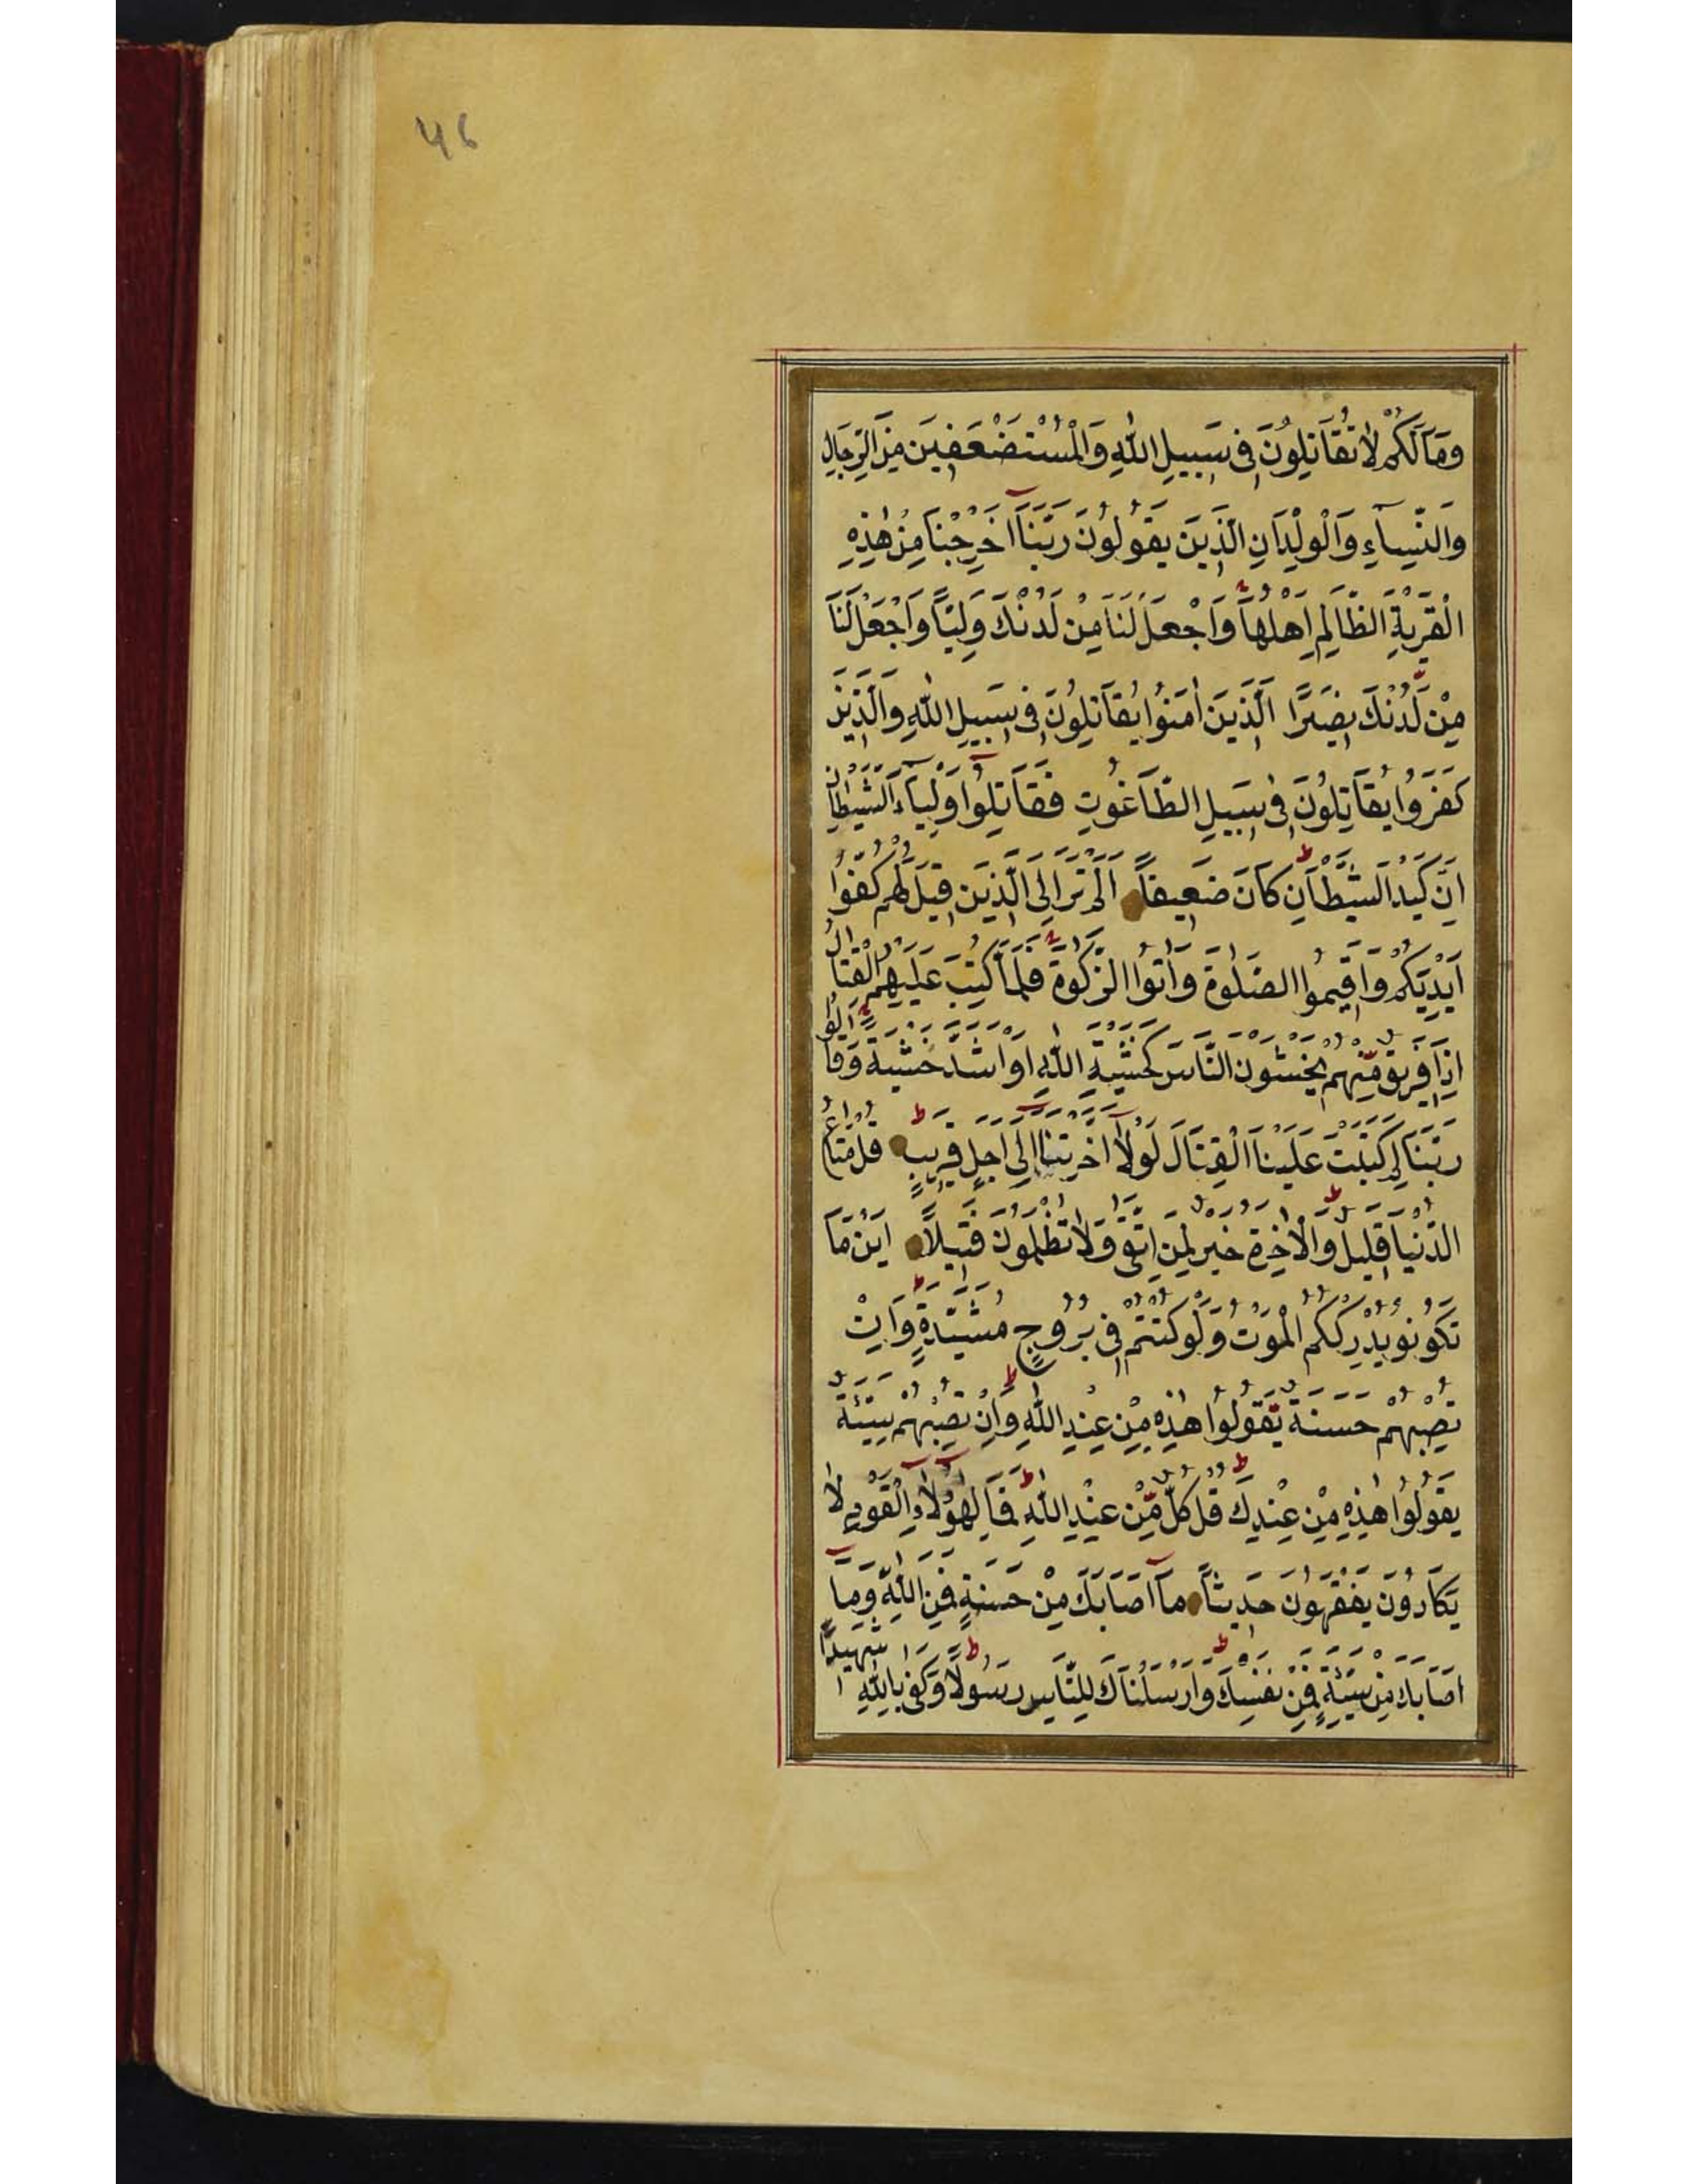 46
وَمَا لَكُمْ لَا تُقَاتِلُونَ فِى سَبِيلِ اللّٰهِ وَالْمُسْتَضْعَفِينَ مِنَ الرِّجَالِ
وَالنِّسَآءِ وَالْوِلْدَانِ الَّذِينَ يَقُولُونَ رَبَّنَآ اَخْرِجْنَا مِنْ هٰذِهِ
الْقَرْيَةِ الظَّالِمِ اَهْلُهَا وَاجْعَلْ لَنَا مِنْ لَدُنْكَ وَلِيًّا وَاجْعَلْ لَنَا
مِنْ لَدُنْكَ نَصِيرًا الَّذِينَ اٰمَنُوا يُقَاتِلُونَ فِى سَبِيلِ اللّٰهِ وَالَّذِينَ
كَفَرُوا يُقَاتِلُونَ فِى سَبِيلِ الطَّاغُوتِ فَقَاتِلُوٓا اَوْلِيَآءَ الشَّيْطَانِ
اِنَّ كَيْدَ الشَّيْطَانِ كَانَ ضَعِيفًا اَلَمْ تَرَ اِلَى الَّذِينَ قِيلَ لَهُمْ كُفُّوا
اَيْدِيَكُمْ وَاَقِيمُوا الصَّلٰوةَ وَاٰتُوا الزَّكٰوةَ فَلَمَّا كُتِبَ عَلَيْهِمُ الْقِتَالُ
اِذَا فَرِيقٌ مِنْهُمْ يَخْشَوْنَ النَّاسَ كَخَشْيَةِ اللّٰهِ اَوْ اَشَدَّ خَشْيَةً وَقَالُوا
رَبَّنَا لِمَ كَتَبْتَ عَلَيْنَا الْقِتَالَ لَوْلَآ اَخَّرْتَنَآ اِلٰٓى اَجَلٍ قَرِيبٍ قُلْ مَتَاعُ
الدُّنْيَا قَلِيلٌ وَالْاٰخِرَةُ خَيْرٌ لِمَنِ اتَّقٰى وَلَا تُظْلَمُونَ فَتِيلًا اَيْنَ مَا
تَكُونُو يُدْرِكْكُمُ الْمَوْتُ وَلَوْ كُنْتُمْ فِى بُرُوجٍ مُشَيَّدَةٍ وَاِنْ
تُصِبْهُمْ حَسَنَةٌ يَقُولُوا هٰذِهِ مِنْ عِنْدِ اللّٰهِ وَاِنْ تُصِبْهُمْ سَيِّئَةٌ
يَقُولُوا هٰذِهِ مِنْ عِنْدِكَ قُلْ كُلٌّ مِنْ عِنْدِ اللّٰهِ فَمَالِ هٰٓؤُلَآءِ الْقَوْمِ لَا
يَكَادُونَ يَفْقَهُونَ حَدِيثًا مَآ اَصَابَكَ مِنْ حَسَنَةٍ فَمِنَ اللّٰهِ وَمَآ
اَصَابَكَ مِنْ سَيِّئَةٍ فَمِنْ نَفْسِكَ وَاَرْسَلْنَاكَ لِلنَّاسِ رَسُولًا وَكَفٰى بِاللّٰهِ شَهِيدًا